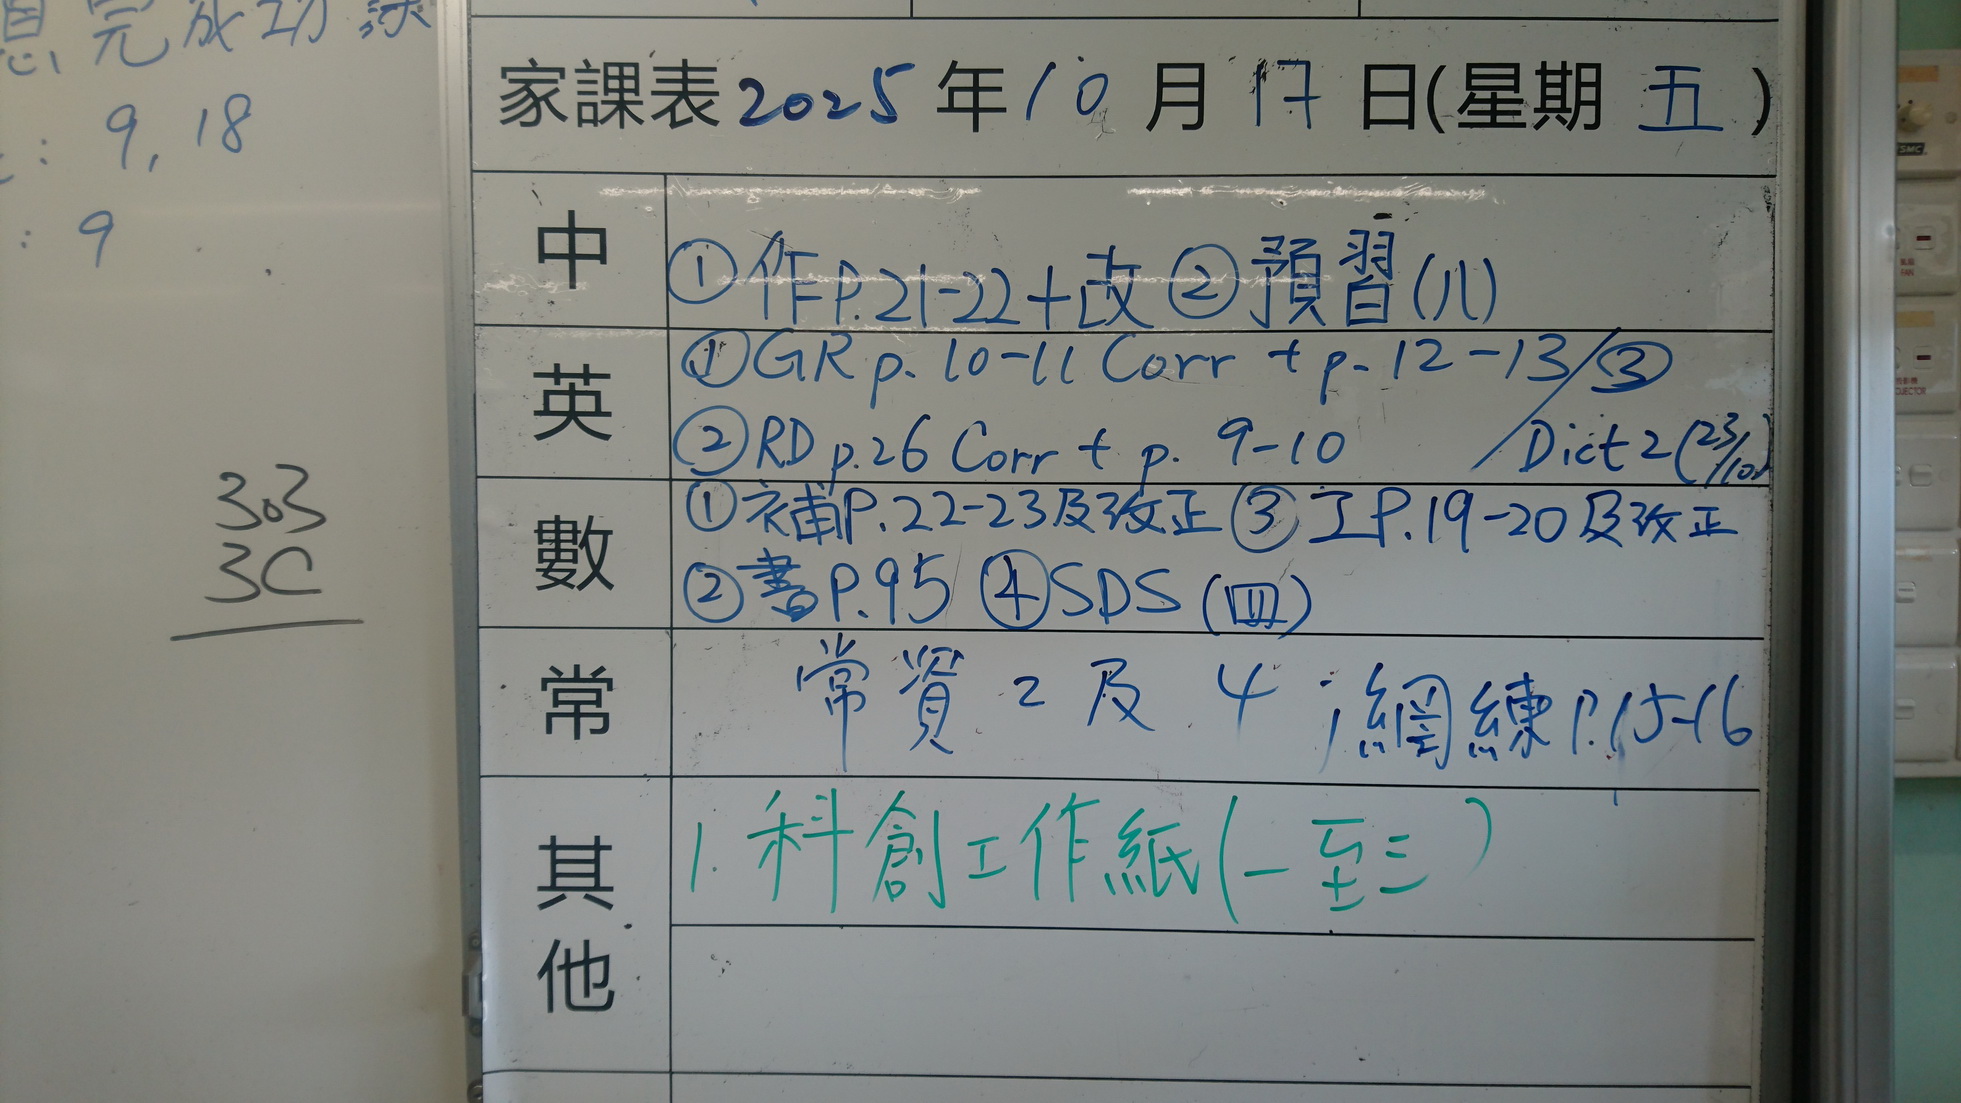 完成功課
: 9, 18
: 9
303
3C
家課表 2025 年 10 月 17 日(星期 五 )
中
① 作P.21-22+改 ② 預習(八)
英
① GR p. 10-11 Corr + p. 12-13 / ③
② RD p.26 Corr + p. 9-10 / Dict 2 (23/10)
數
① 補P.22-23及改正 ③ 工P.19-20及改正
② 書P.95 ④ SDS (四)
常
常資 2 及 4 ; 網練P.15-16
其他
1. 科創工作紙(一至三)
FAN